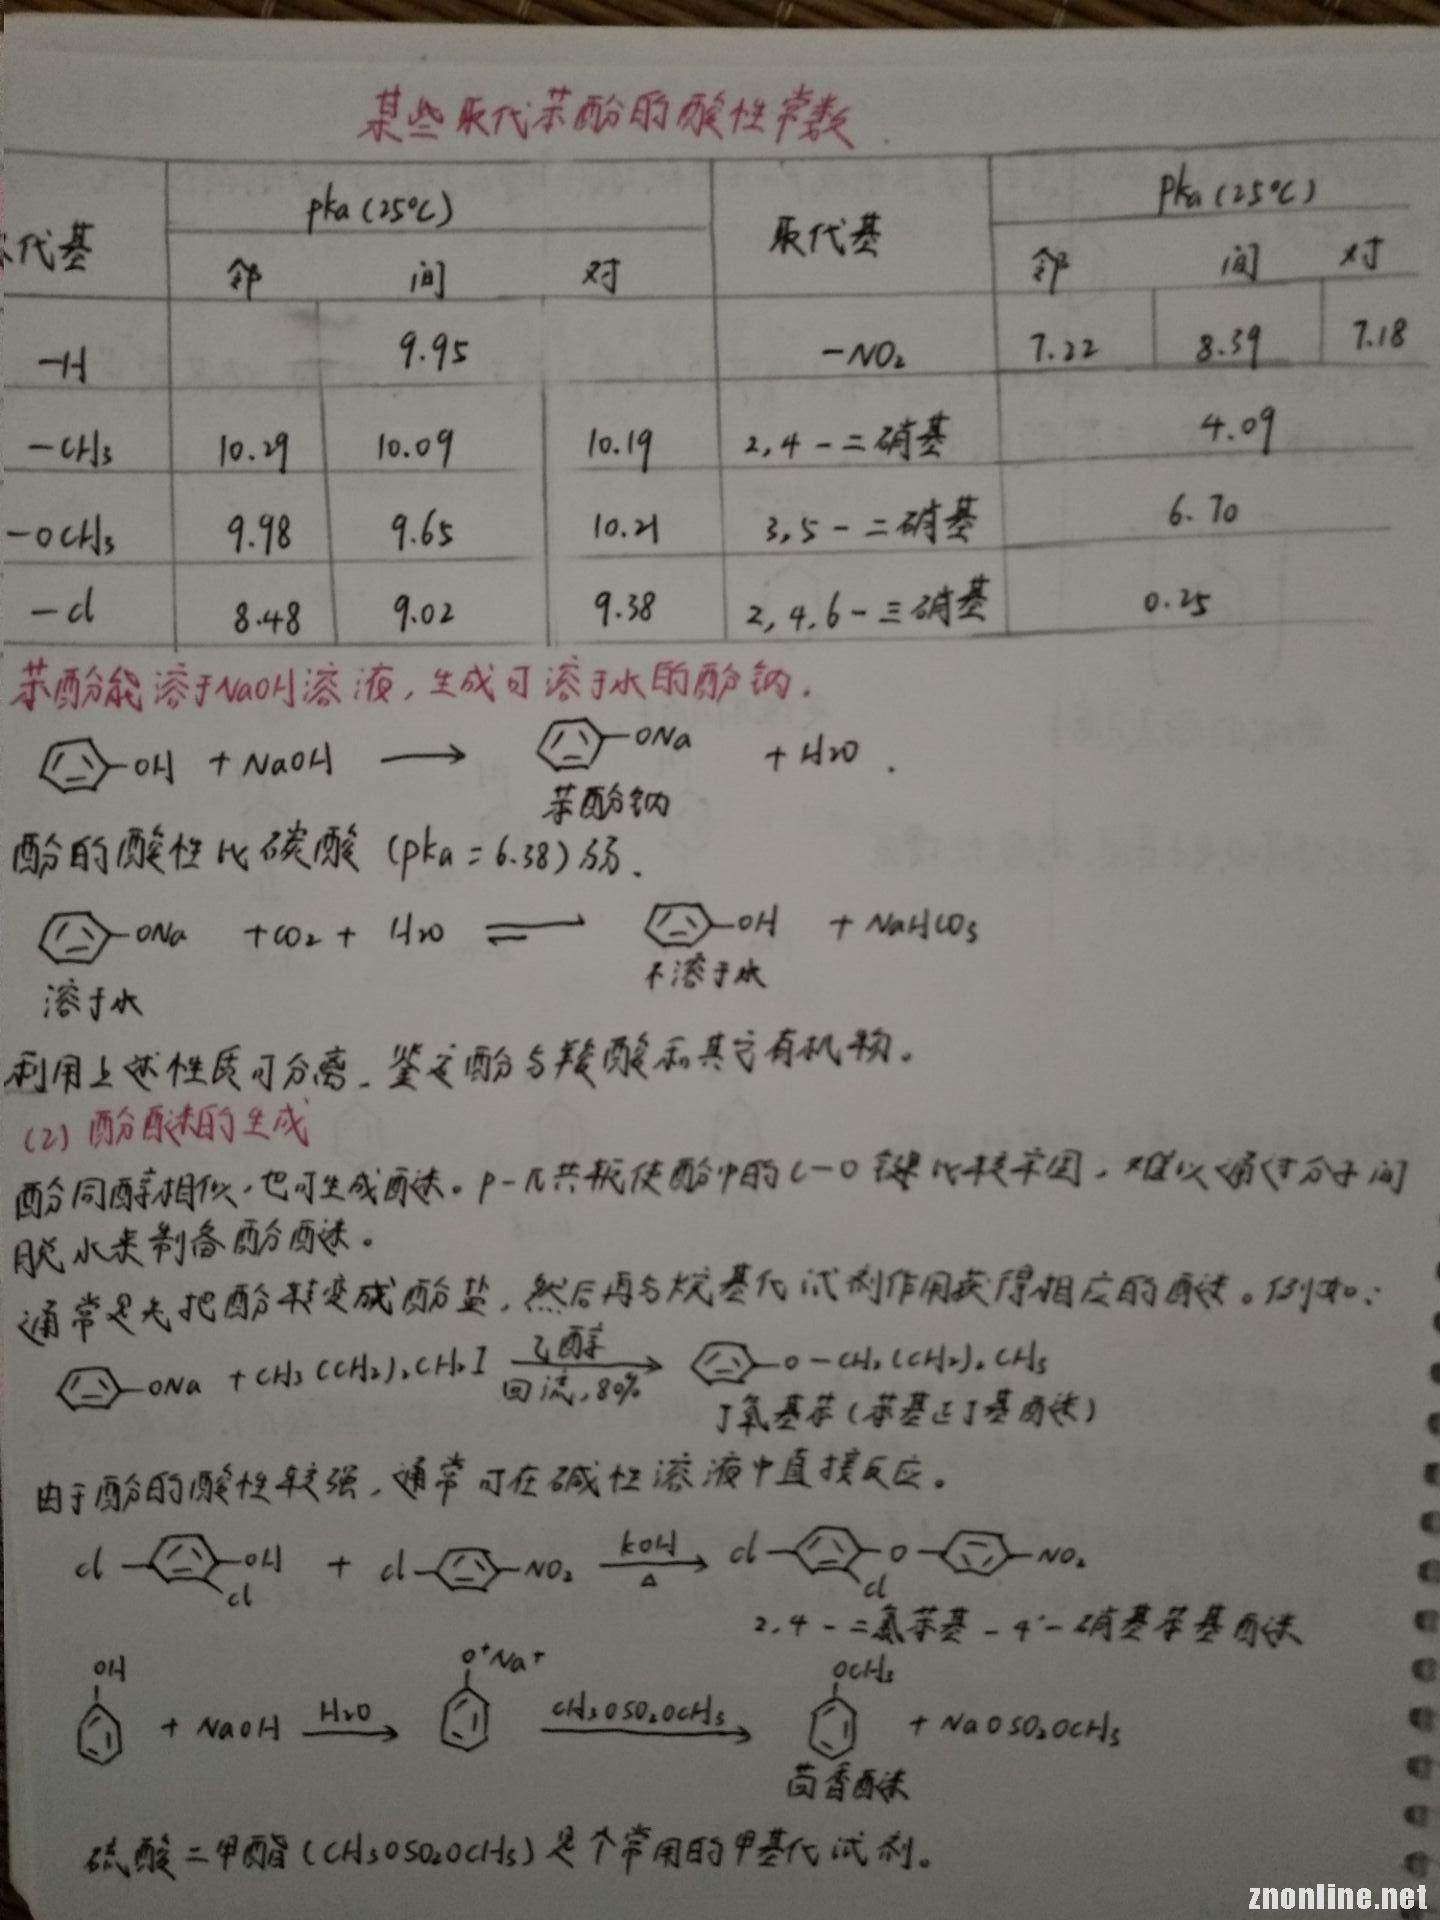 某些取代苯酚的酸性常数
代基 pka(25°C) 取代基 pka(25°C)
邻 间 对 邻 间 对
-H 9.95 -NO₂ 7.22 8.39 7.18
-CH₃ 10.29 10.09 10.19 2,4-二硝基 4.09
-OCH₃ 9.98 9.65 10.21 3,5-二硝基 6.70
-Cl 8.48 9.02 9.38 2,4,6-三硝基 0.25
苯酚能溶于NaOH溶液,生成可溶于水的酚钠.
OH + NaOH → ONa + H₂O.
苯酚钠
酚的酸性比碳酸(pka=6.38)弱.
ONa + CO₂ + H₂O ⇌ OH + NaHCO₃
溶于水 不溶于水
利用上述性质可分离、鉴定酚与羧酸和其它有机物。
(2) 酚醚的生成
酚同醇相似,也可生成醚。p-π共轭使酚中的C-O键比较牢固,难以通过分子间
脱水来制备酚醚。
通常是先把酚转变成酚盐,然后再与烷基化试剂作用获得相应的醚。例如:
ONa + CH₃(CH₂)₂CH₂I 乙醇 回流,80% → O-CH₂(CH₂)₂CH₃
丁氧基苯(苯基正丁基醚)
由于酚的酸性较强,通常可在碱性溶液中直接反应。
Cl OH Cl + Cl NO₂ KOH △ → Cl O Cl NO₂
2,4-二氯苯基-4'-硝基苯基醚
OH + NaOH H₂O → O⁺Na⁺ CH₃OSO₂OCH₃ → OCH₃ + NaOSO₂OCH₃
茴香醚
硫酸二甲酯(CH₃OSO₂OCH₃)是个常用的甲基化试剂。
znonline.net